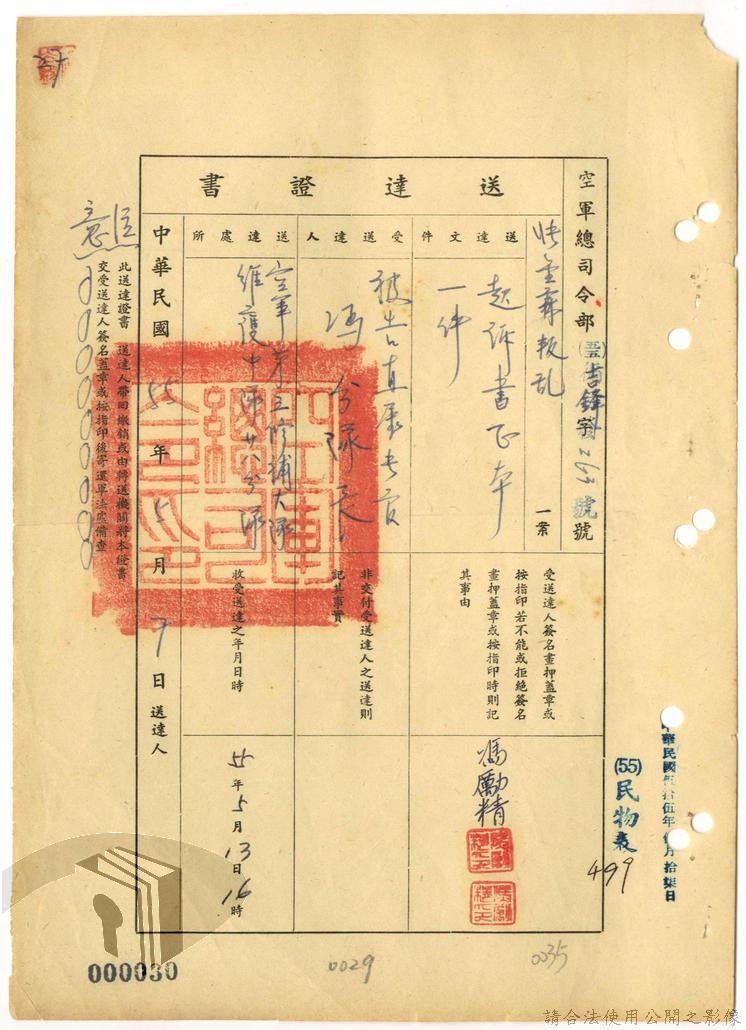 送達證書
空軍總司令部(55)
字
號
叛乱
一案
送達文件
起訴書正本
一件
受送達人
被告直属長官
馮分隊長
送達處所
空軍第三修補大隊
維護中隊廿八分隊
受送達人簽名畫押蓋章或
按指印若不能或拒絕簽名
畫押蓋章或按指印時則記
其事由
馮勵精
非交付受送達人之送達則
記其事實
收受送達之年月日時
55年5月13日16時
中華民國55年5月7日送達人
此送達證書送達人帶回繳銷或由轉送機關將本證書
交受送達人簽名蓋章或按指印後寄還軍法處備查
(55)民物
499
000030
0029
0035
請合法使用公開之影像